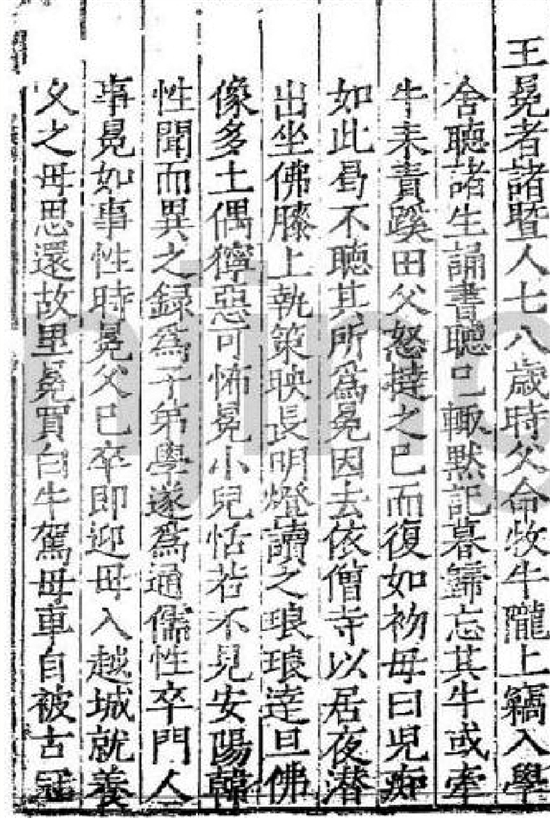 王冕者諸暨人七八歲時父命牧牛隴上竊入學
舍聽諸生誦書聽已輙默記暮歸忘其牛或牽
牛来責蹊田父怒撻之已而復如初母曰児痴
如此曷不聴其所為冕因去依僧寺以居夜潜
出坐佛膝上執策映長明燈讀之琅琅達旦佛
像多土偶獰惡可怖冕小兒恬若不見安陽韓
性聞而異之録為子弟學遂為通儒性卒門人
事冕如事性時冕父已卒即迎母入越城就養
乆之母思還故里冕買白牛駕母車自被古冠